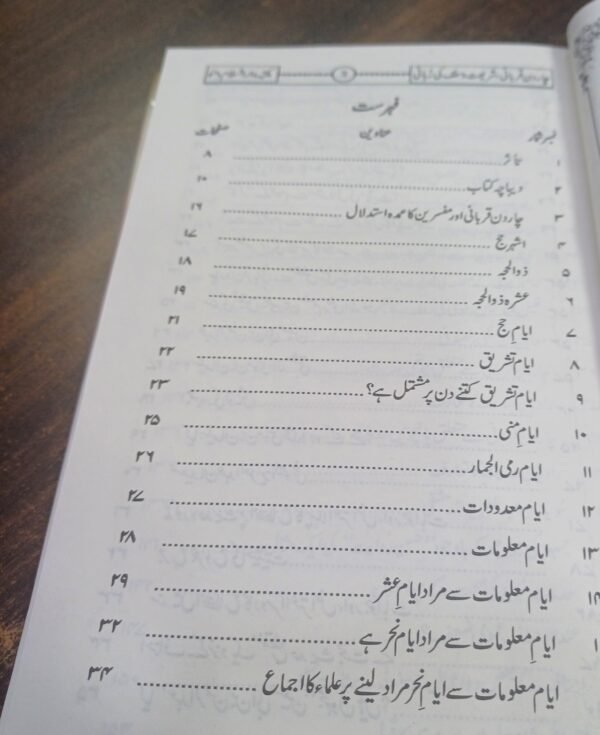 فہرست
نمبر شمار عناوین صفحات
۱ تاثر ۸
۲ دیباچہ کتاب ۱۰
۳ چار دن قربانی اور مفسرین کا عمدہ استدلال ۱۶
۴ اشہر حج ۱۷
۵ ذوالحجہ ۱۸
۶ عشرہ ذوالحجہ ۱۹
۷ ایام حج ۲۱
۸ ایام تشریق ۲۲
۹ ایام تشریق کتنے دن پر مشتمل ہے؟ ۲۳
۱۰ ایام منیٰ ۲۵
۱۱ ایام رمی الجمار ۲۶
۱۲ ایام معدودات ۲۷
۱۳ ایام معلومات ۲۸
۱۴ ایام معلومات سے مراد ایامِ عشر ۲۹
۱ ایامِ معلومات سے مراد ایام نحر ہے ۳۲
ایام معلومات سے ایامِ نحر مراد لینے پر علماء کا اجماع ۳۴